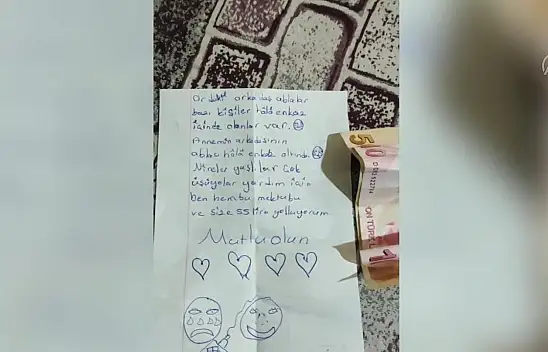 arkadaş ablalar
bazı kişiler hâlâ enkaz
içinde olanlar var.
Annemin arkadaşının
ablası hâlâ enkaz altında
Nineler yaşlılar çok
üşüyolar yardım için
ben hem bu mektubu
ve size 55 lira yolluyorum
Mutlu olun
50